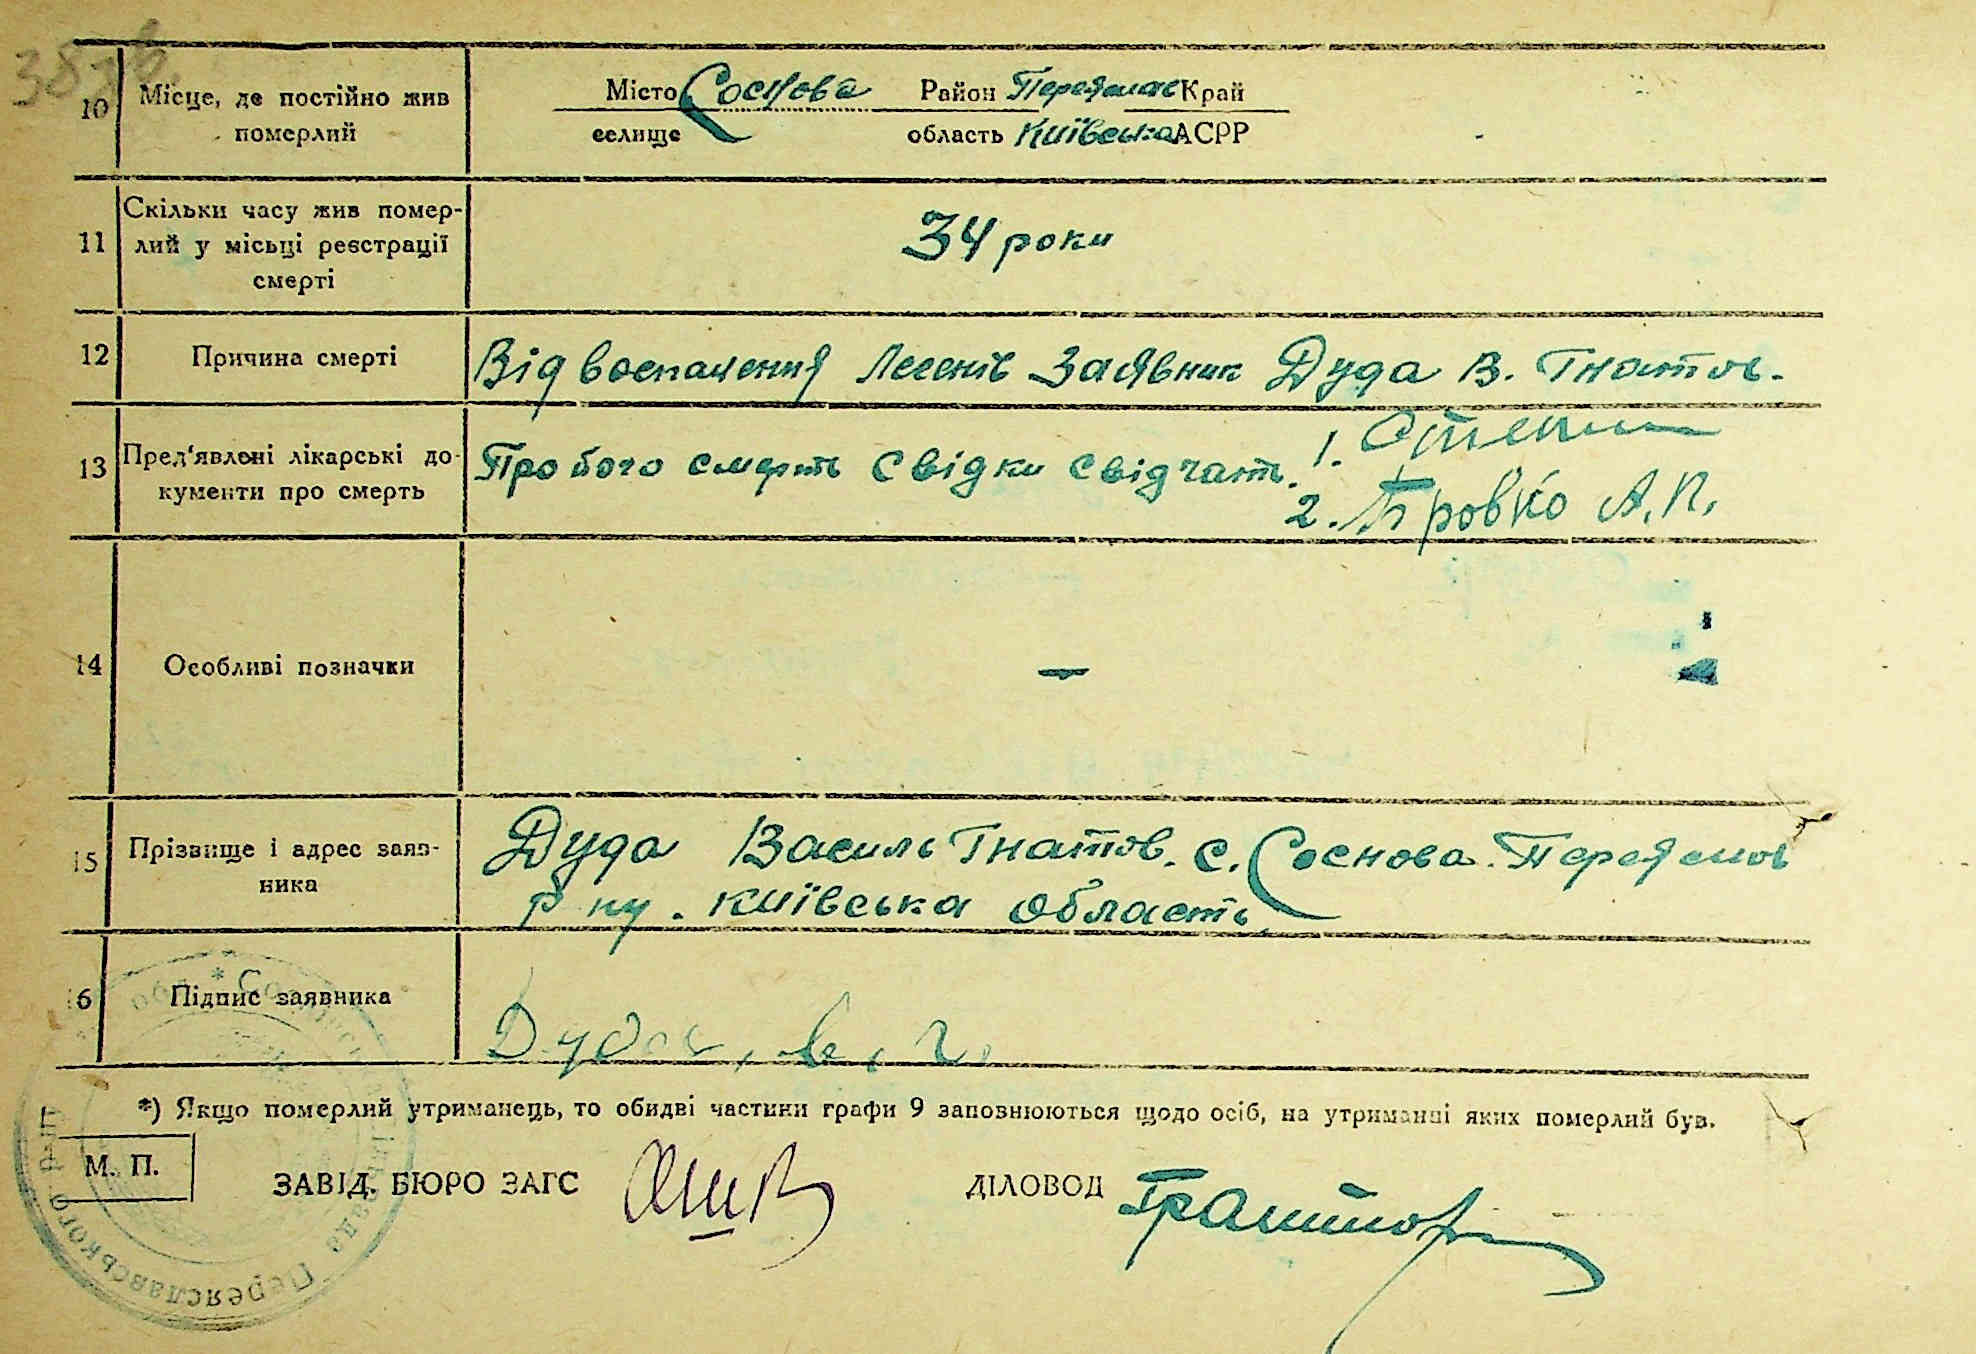 10 Місце, де постійно жив померлий
Місто Соснова Район Переяслав Край
селище область Київська АСРР
11 Скільки часу жив помер-
лий у місьці реєстрації
смерті
34 роки
12 Причина смерті
Від воспаления легенів Заявник Дуда В. Гнатов.
13 Пред'явлені лікарські до-
кументи про смерть
Про його смерть свідки свідчать. 1.
2. Бровко А.П.
14 Особливі позначки
–
15 Прізвище і адрес заяв-
ника
Дуда Василь Гнатов. с. Соснова. Переяслов
р ну. Київська область
16 Підпис заявника
Дуда, В, Г,
*) Якщо померлий утриманець, то обидві частини графи 9 заповнюються щодо осіб, на утриманні яких померлий був.
М. П.
ЗАВІД. БЮРО ЗАГС
ДІЛОВОД
Переяславського р-ну